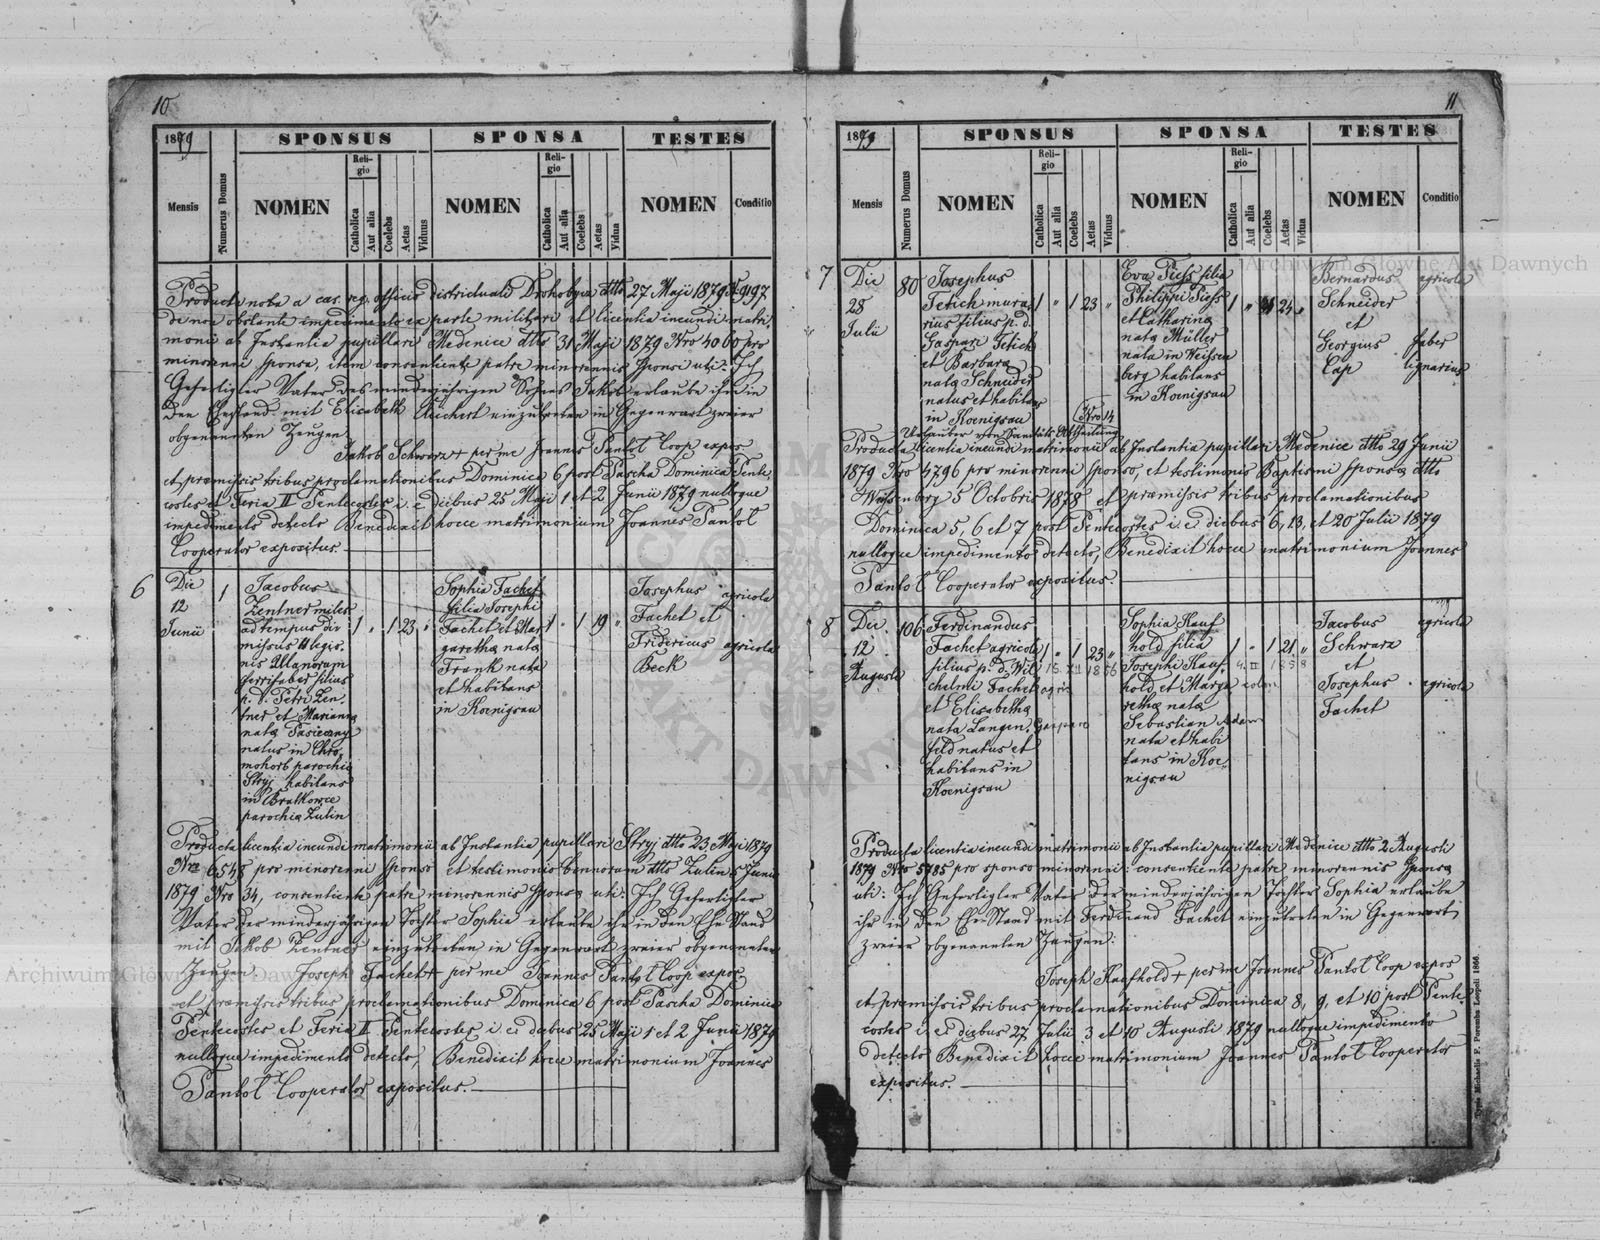 10
1879
SPONSUS
SPONSA
TESTES
Mensis
Numerus Domus
NOMEN
Religio
Catholica
Aut alia
Coelebs
Aetas
Viduus
NOMEN
Religio
Catholica
Aut alia
Coelebs
Aetas
Vidua
NOMEN
Conditio
Producta nota a caes. reg. officio districtuali Drohobycz dtto 27 Maji 1879 N 9197
de non obstante impedimento ex parte militari et licentia ineundi matri
monii ab Instantia pupillari Medenice dtto 31 Maji 1879 Nro 4060 pro
minorenni sponsa, item consentiente patre minorennis Sponsi uti: Ich
Gefertigter Vater des minderjährigen Sohnes Jakob erlaube ihm in
den Ehestand mit Elisabeth Reichert einzutreten in Gegenwart zweier
obgenannten Zeugen
Jakob Schwarz + per me Joannes Pantoł Coop. expos
et praemissis tribus proclamationibus Dominica 6 post Pascha Dominica Pente
costes et Feria II Pentecostes i. e diebus 25 Maji 1 et 2 Junii 1879 nulloque
impedimento detecto Benedixit hocce matrimonium Joannes Pantoł
Cooperator expositus.
6
Die
12
Junii
1
Jacobus
Zentner miles
ad tempus dir
missus 11 legio
nis Ulanorum
ferrifaber filius
p. d. Petri Zen
tner et Marianna
nata Tasieczny
natus in Chro
mohorb parochia
Stryj habitans
in Bratkowce
parochia Zulin
1 " 1 23 "
Sophia Fachet
filia Josephi
Fachet et Mar
garetha nata
Frank nata
et habitans
in Koenigsau
1 " 1 19 "
Josephus
Fachet et
Fridericus
Beck
agricola
agricola
Producta licentia ineundi matrimonii ab Instantia pupillari Stryj dtto 23 Maji 1879
Nro 6548 pro minorenni sponso et testimonio bannorum dtto Zulin 5 Junii
1879 Nro 34, consentiente patre minorennis Sponsa uti: Ich Gefertigter
Vater der minderjährigen Tochter Sophia erlaube ihr in den Ehe Stand
mit Jakob Zentner einzutreten in Gegenwart zweier obgenannten
Zeugen Joseph Fachet + per me Joannes Pantoł Coop. expos
et praemissis tribus proclamationibus Dominica 6 post Pascha Dominica
Pentecostes et Feria II Pentecostes i. e. diebus 25 Maji 1 et 2 Junii 1879
nulloque impedimento detecto, Benedixit hocce matrimonium Joannes
Pantoł Cooperator expositus.
11
1879
SPONSUS
SPONSA
TESTES
Mensis
Numerus Domus
NOMEN
Religio
Catholica
Aut alia
Coelebs
Aetas
Viduus
NOMEN
Religio
Catholica
Aut alia
Coelebs
Aetas
Vidua
NOMEN
Conditio
7
Die
28
Julii
80
Josephus
Fetich mura
rius filius p. d.
Gaspari Fetich
et Barbara
nata Schneider
natus et habitans
in Koenigsau
1 " 1 23 "
Eva Piess filia
Philippi Piess
et Catharina
nata Müller
nata in Weissen
berg habitans
in Koenigsau
1 " 24 "
Bernardus
Schneider
et
Georgius
Cap
agricola
faber
lignarius
Nro 14
Urlauber von Sanitäts Abtheilung
Producta licentia ineundi matrimonii ab Instantia pupillari Medenice dtto 29 Junii
1879 Nro 4796 pro minorenni sponso, et testimonio Baptismi Sponsa dtto
Weissenberg 5 Octobris 1878 et praemissis tribus proclamationibus
Dominica 5, 6 et 7 post Pentecostes i. e. diebus 6, 13, et 20 Julii 1879
nulloque impedimento detecto, Benedixit hocce matrimonium Joannes
Pantoł Cooperator expositus.
8
Die
12
Augusti
106
Ferdinandus
Fachet agricola
filius p. d. Wil
chelmi Fachet agric
et Elisabetha
nata Langen
feld natus et
habitans in
Koenigsau
Gaspard
1 " 1 23 "
15 XII 1856
Sophia Kauf
hold filia
Josephi Kauf
hold et Marga
retha nata
Sebastian Adam
nata et habi
tans in Koe
nigsau
colon
1 " 1 21 "
4. II 1858
Jacobus
Schwarz
et
Josephus
Fachet
agricola
agricola
Producta licentia ineundi matrimonii ab Instantia pupillari Medenice dtto 2 Augusti
1879 Nro 5785 pro sponso minorenni: consentiente patre minorennis Sponsa
uti: Ich Gefertigter Vater der minderjährigen Tochter Sophia erlaube
ihr in den Ehe Stand mit Ferdinand Fachet einzutreten in Gegenwart
zweier obgenannten Zeugen:
Joseph Kaufhold + per me Joannes Pantoł Coop expos
et praemissis tribus proclamationibus Dominica 8, 9, et 10 post Pente
costes i. e. diebus 27 Julii 3 et 10 Augusti 1879 nulloque impedimento
detecto Benedixit hocce matrimonium Joannes Pantoł Cooperator
expositus.
Typis Michaelis F. Poremba Leopoli 1866.
Archiwum Główne Akt Dawnych
Archiwum Główne Akt Dawnych